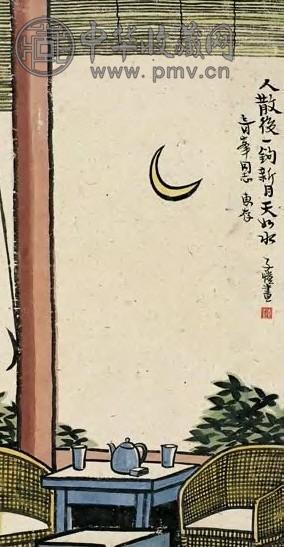 中华收藏网
www.pmv.cn
人散後一鈎新月天如水
同志惠存
子愷畫